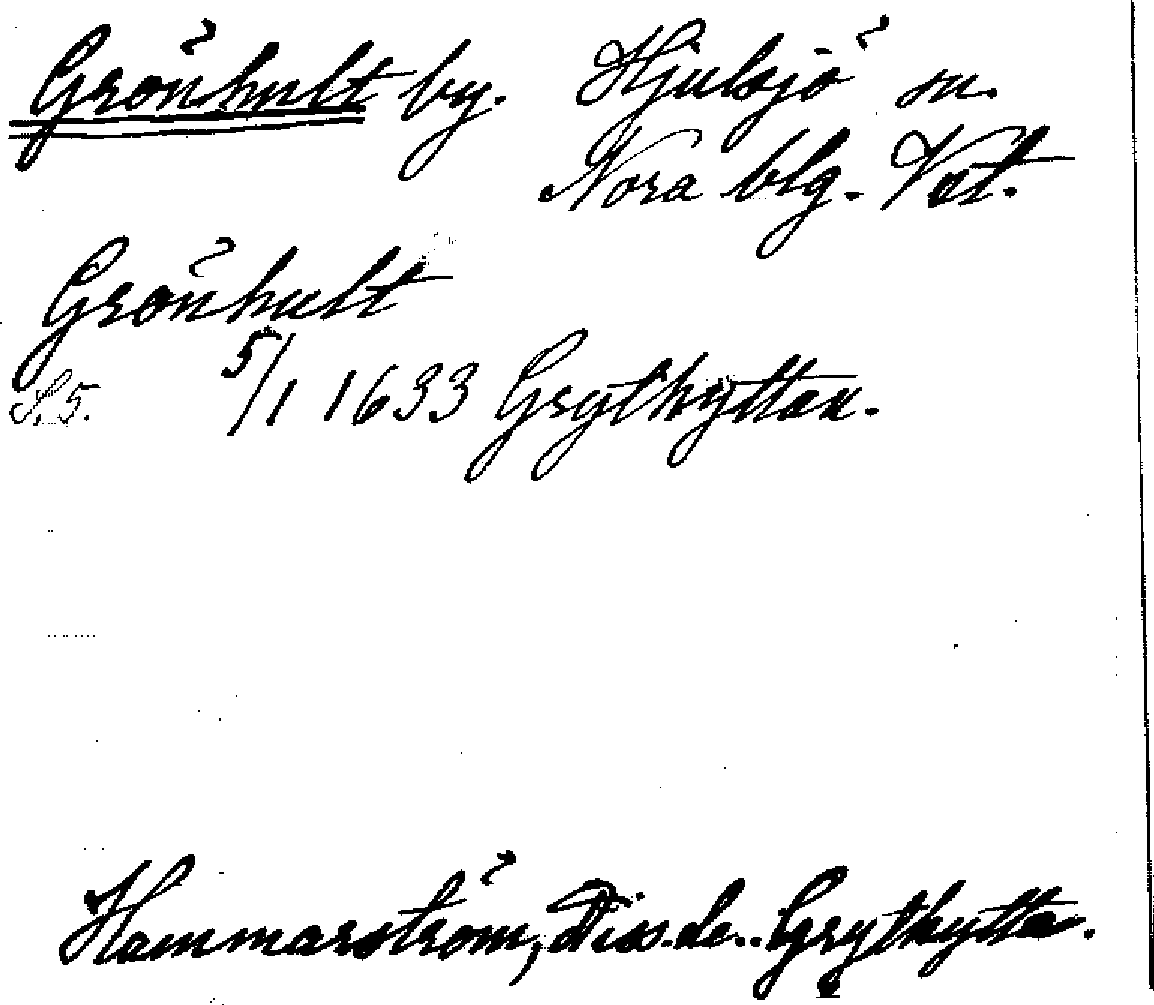 Grönhult by. Hjulsjö sn.
Nora blg. Vstl.
Grönhult
S. 5. 5/1 1633 Grythyttan.
Hammarström, Diss. de. Grythytta.